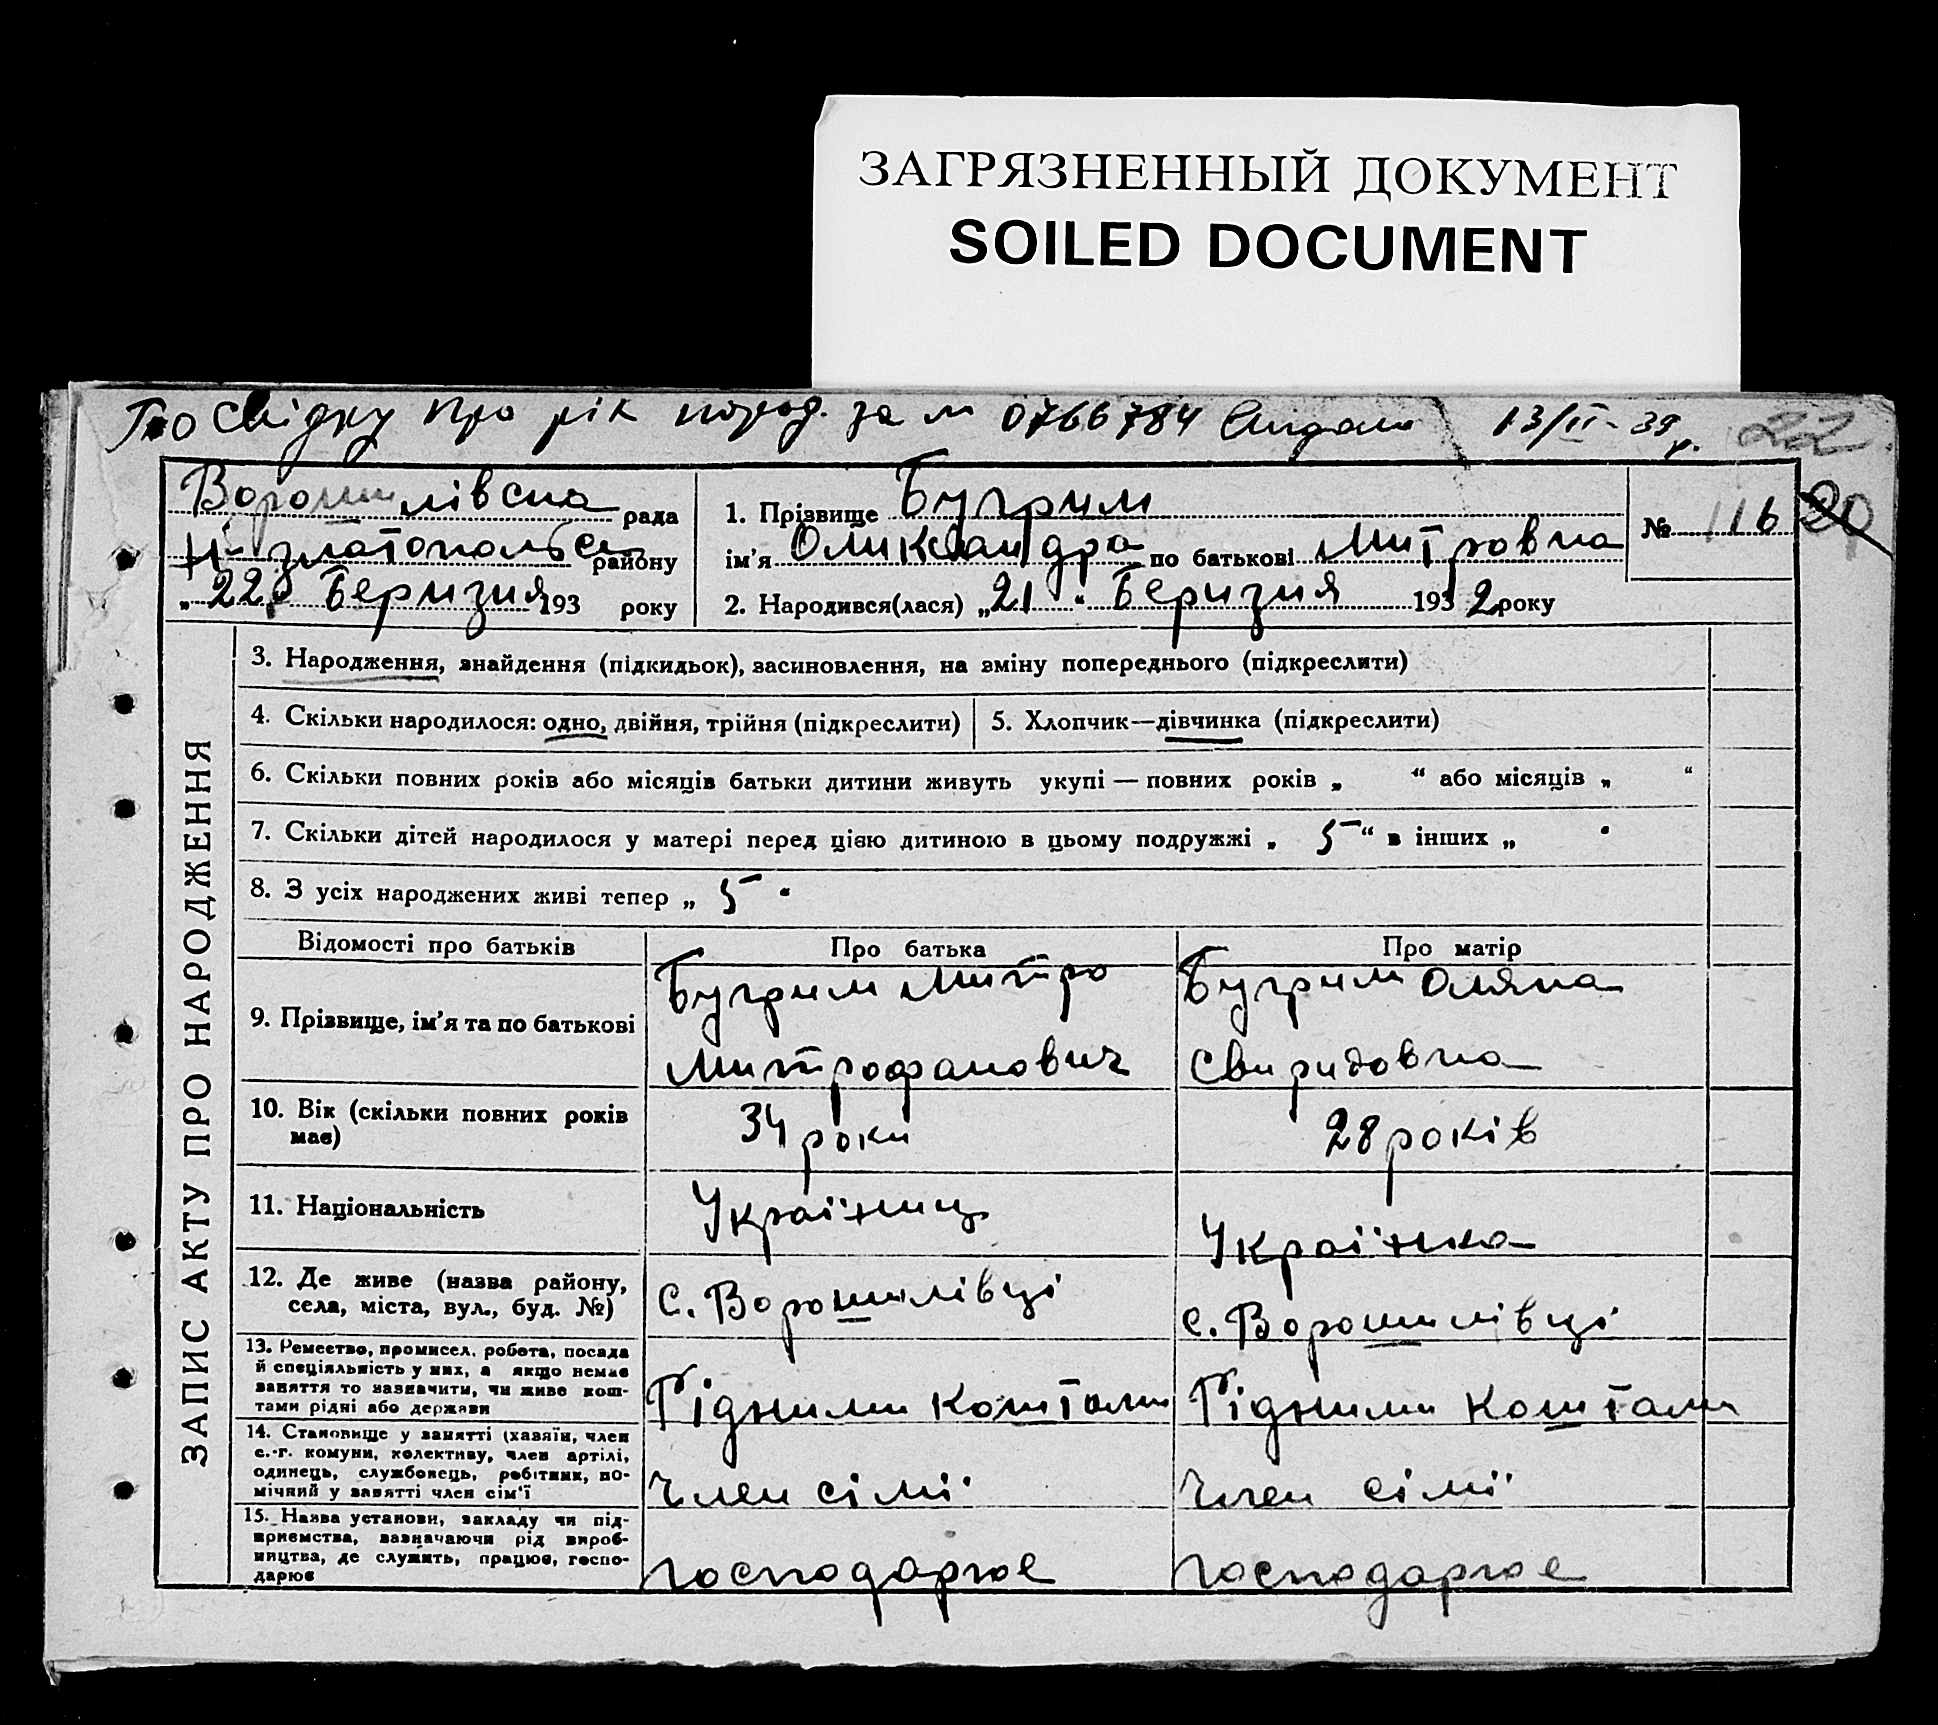 ЗАГРЯЗНЕННЫЙ ДОКУМЕНТ
SOILED DOCUMENT
свідку про рік народ. за № 0766784 13/II-39 р. 22
Ворошилівска рада
Н-златопольск району
„22" Беризня 193 року
1. Прізвище Бугрим
ім'я Оликсандра по батькові Митровна
2. Народився(лася) „21" Беризня 1932 року
№ 116 20
ЗАПИС АКТУ ПРО НАРОДЖЕННЯ
3. Народження, знайдення (підкидьок), засиновлення, на зміну попереднього (підкреслити)
4. Скільки народилося: одно, двійня, трійня (підкреслити)
5. Хлопчик—дівчинка (підкреслити)
6. Скільки повних років або місяців батьки дитини живуть укупі — повних років „ “ або місяців „ “
7. Скільки дітей народилося у матері перед цією дитиною в цьому подружжі „ 5 “ в інших „ "
8. З усіх народжених живі тепер „ 5 "
Відомості про батьків Про батька Про матір
9. Прізвище, ім'я та по батькові
Бугрим Митро
Митрофанович
Бугрим Оляна
Свиридовна
10. Вік (скільки повних років
має)
34 роки
28 років
11. Національність
Україниц
Українка
12. Де живе (назва району,
села, міста, вул., буд. №)
с. Ворошилівці
с. Ворошилівці
13. Ремество, промисел, робота, посада
й спеціяльність у них, а якщо немає
заняття то зазначити, чи живе кош-
тами рідні або держави
Рідними коштами
Рідними коштами
14. Становище у занятті (хазяїн, член
с.-г. комуни, колективу, член артілі,
одинець, службовець, робітник, по-
мічний у занятті член сім'ї
Член сімї
Член сімї
15. Назва установи, закладу чи під-
приємства, зазначаючи рід вироб-
ництва, де служить, працює, госпо-
дарює
господарює
господарює